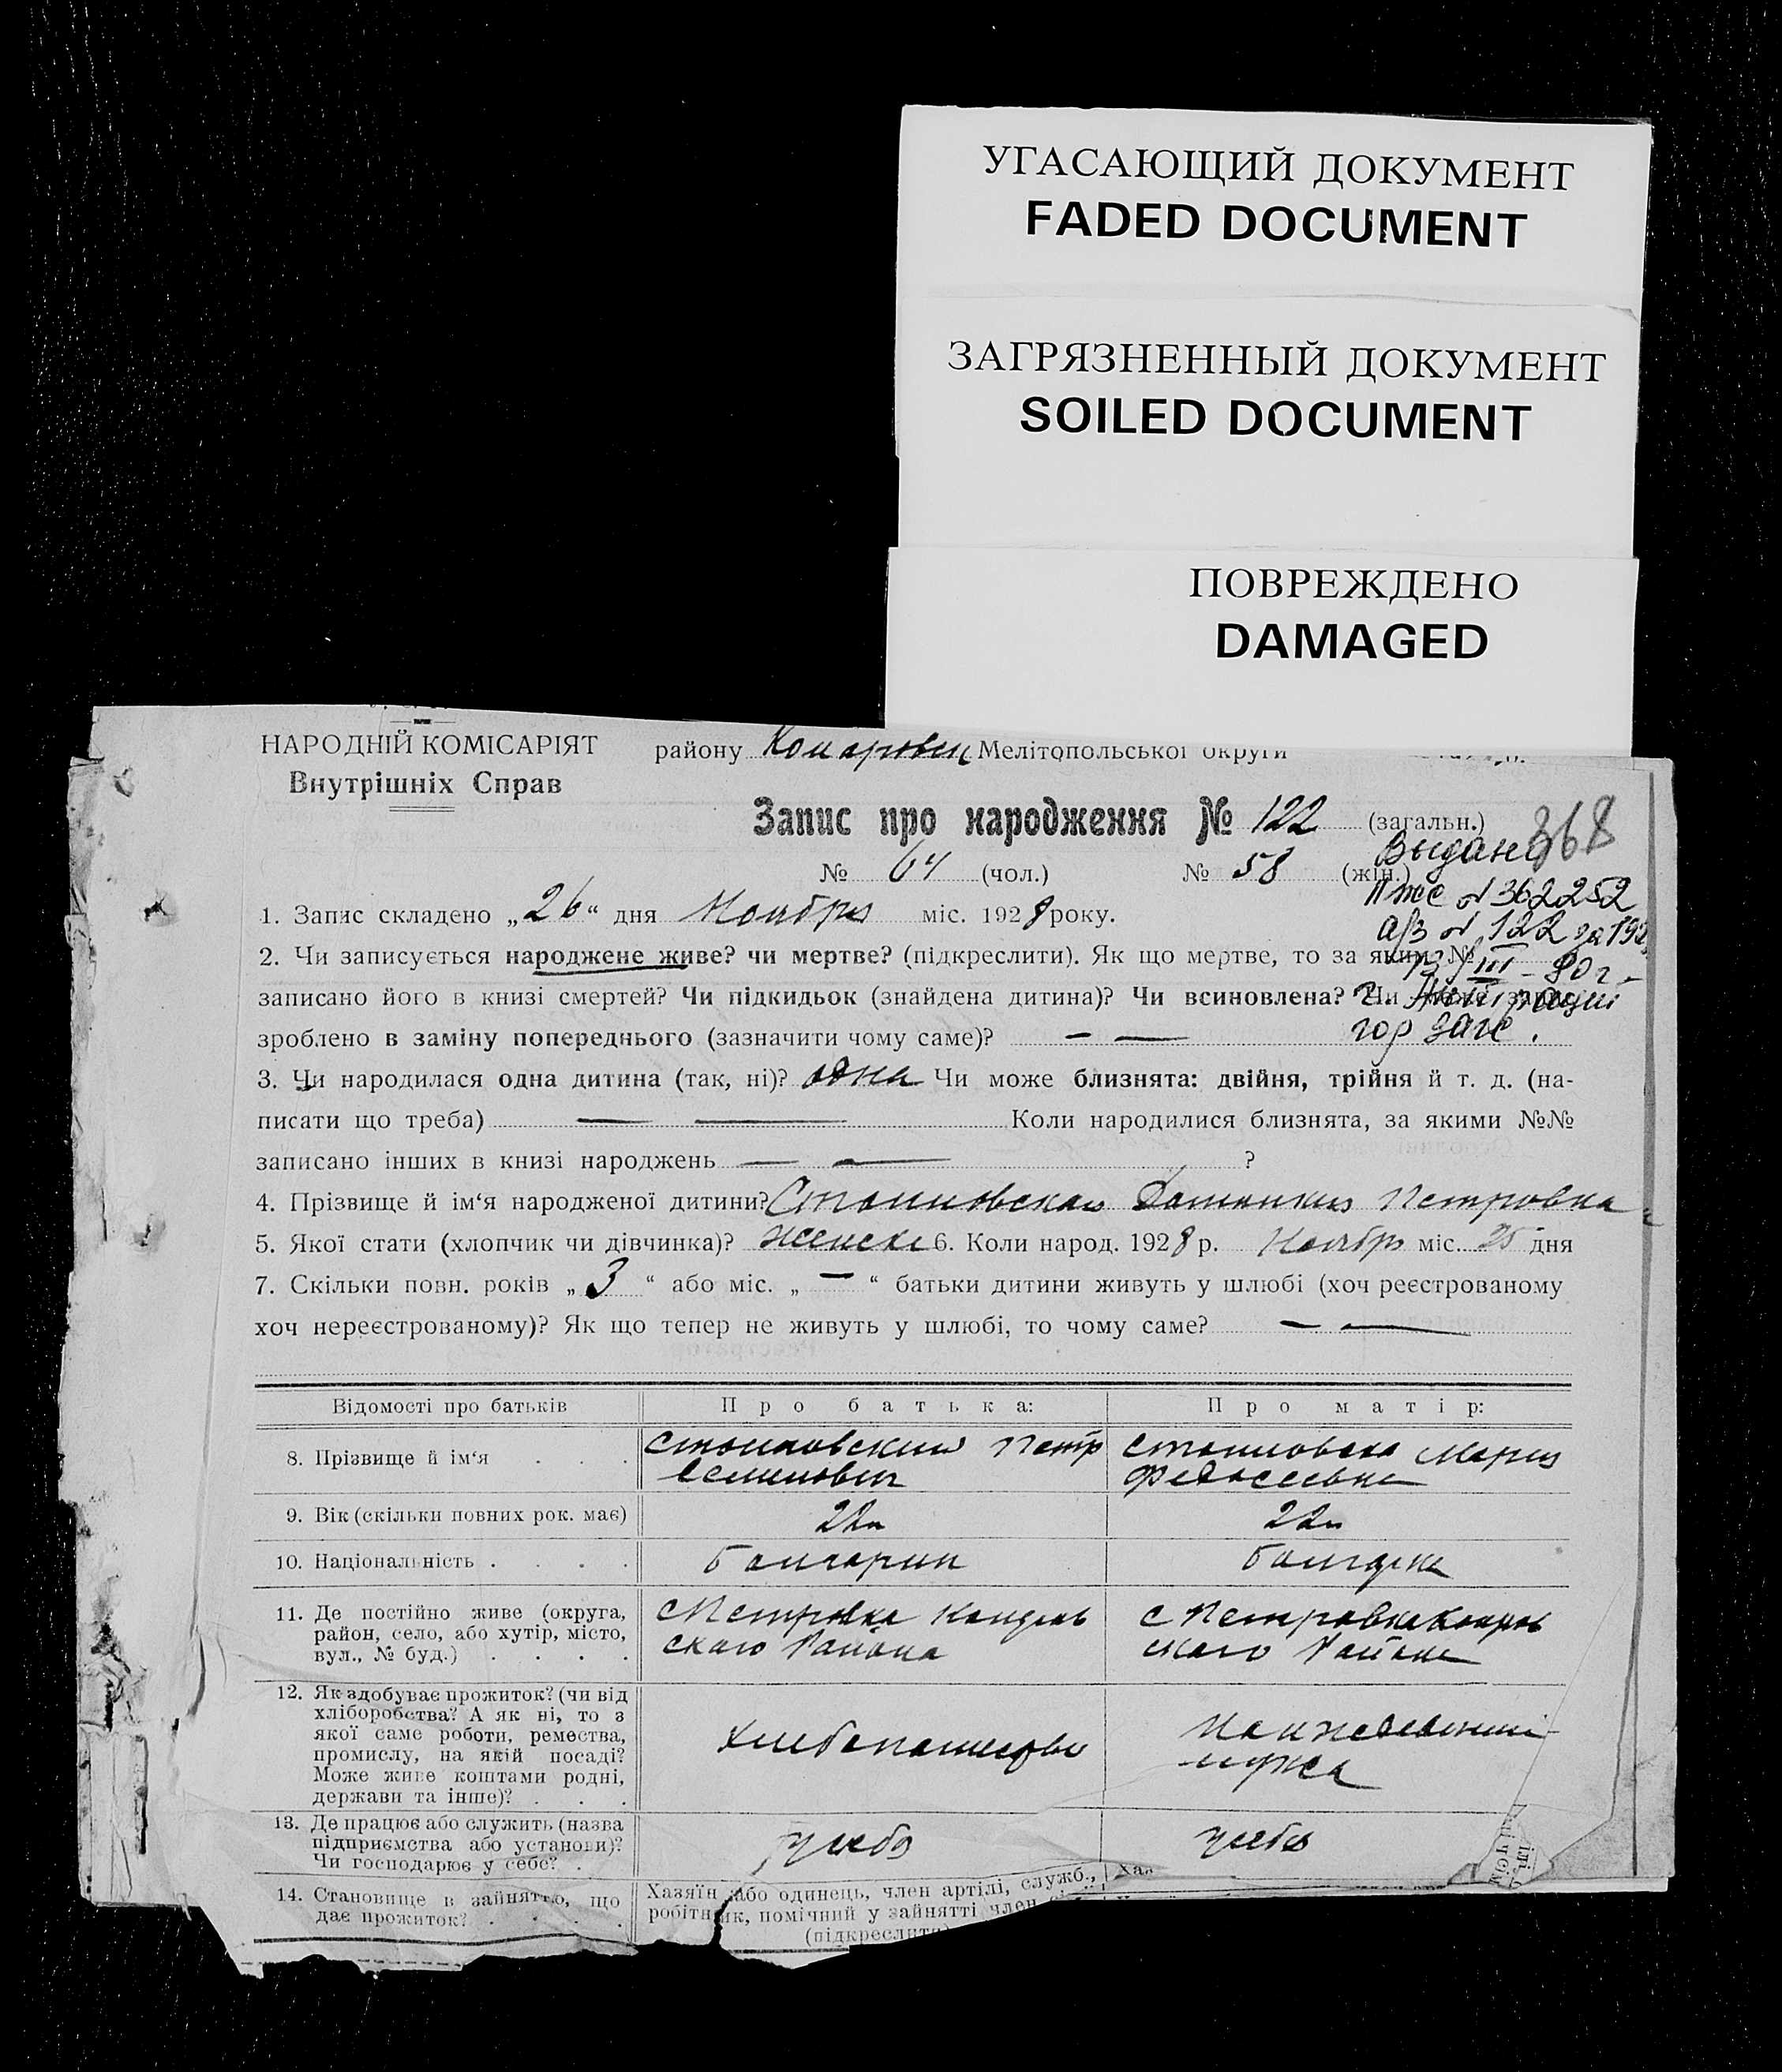 УГАСАЮЩИЙ ДОКУМЕНТ
FADED DOCUMENT
ЗАГРЯЗНЕННЫЙ ДОКУМЕНТ
SOILED DOCUMENT
ПОВРЕЖДЕНО
DAMAGED
НАРОДНІЙ КОМІСАРІЯТ
Внутрішніх Справ
району Мелітопольської округи
Запис про народження № 122 (загальн.)
368
№ 64 (чол.) № 58 (жін.)
Выдано
№ 362252
а/з № 122 за 192
13/III - 80 г.
гор загс.
1. Запис складено „26“ дня Ноября міс. 1928 року.
2. Чи записується народжене живе? чи мертве? (підкреслити). Як що мертве, то за яким №
записано його в книзі смертей? Чи підкидьок (знайдена дитина)? Чи всиновлена? Чи
зроблено в заміну попереднього (зазначити чому саме)? — —
3. Чи народилася одна дитина (так, ні)? одна Чи може близнята: двійня, трійня й т. д. (на-
писати що треба) — — Коли народилися близнята, за якими №№
записано інших в книзі народжень — — ?
4. Прізвище й ім‘я народженої дитини? Стоиновская Петровна
5. Якої стати (хлопчик чи дівчинка)? женск 6. Коли народ. 1928 р. Ноябр міс. 25 дня
7. Скільки повн. років „3“ або міс. „—“ батьки дитини живуть у шлюбі (хоч реєстрованому
хоч нереєстрованому)? Як що тепер не живуть у шлюбі, то чому саме? — —
Відомості про батьків
Про батька:
Про матір:
8. Прізвище й ім‘я . . .
Стоиновский Петр
Семенович
Стоиновска Мария
Федосеевна
9. Вік (скільки повних рок. має)
22л
22л
10. Національність . . . .
Болгарин
болгарка
11. Де постійно живе (округа,
район, село, або хутір, місто,
вул., № буд.) . . . .
с Петровка
ского Района
с Петровка
ского Района
12. Як здобуває прожиток? (чи від
хліборобства? А як ні, то з
якої саме роботи, ремества,
промислу, на якій посаді?
Може живе коштами родні,
держави та інше)? . . .
Хлебопашество
На иждевении
мужа
13. Де працює або служить (назва
підприємства або установи)?
Чи господарює у себе? .
у себя
у себя
14. Становище в зайняттю, що
дає прожиток? . . . .
Хазяїн або одинець, член артілі, служб.,
робітник, помічний у зайнятті член
(підкреслити)